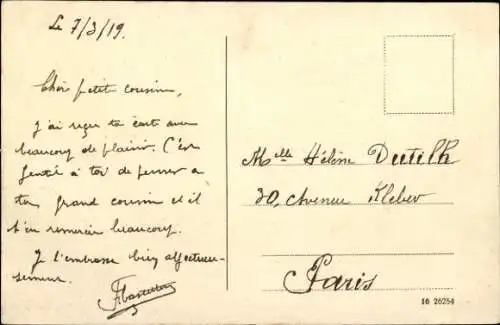 Le 7/3/19.
Chère petite cousine,
J'ai reçu ta carte avec
beaucoup de plaisir. C'est
gentil à toi de penser à
ton grand cousin et il
t'en remercie beaucoup.
Je t'embrasse bien affectueu-
sement.
Mlle Hélène Dutilh
30, Avenue Kleber
Paris
16 26254